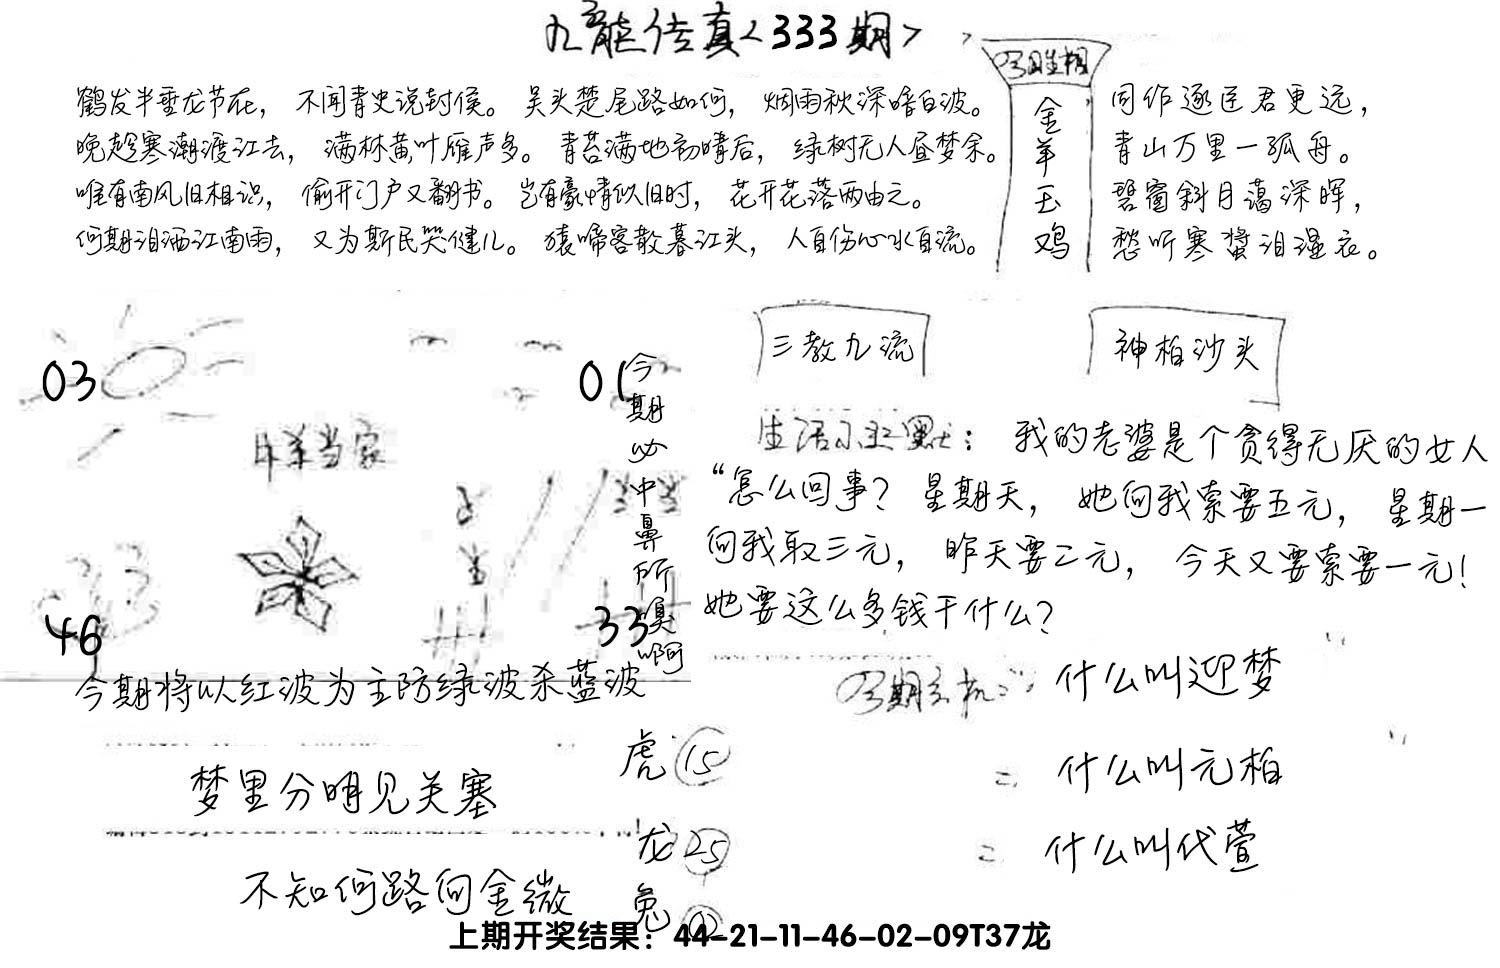 九龙传真<333期>
今期生相
金羊玉鸡
鹤发半垂龙节在，不闻青史说封侯。吴头楚尾路如何，烟雨秋深暗白波。
晚趁寒潮渡江去，满林黄叶雁声多。青苔满地初晴后，绿树无人昼梦余。
唯有南风旧相识，偷开门户又翻书。岂有豪情似旧时，花开花落两由之。
何期泪洒江南雨，又为斯民哭健儿。猿啼客散暮江头，人自伤心水自流。
同作逐臣君更远，
青山万里一孤舟。
碧窗斜月蔼深晖，
愁听寒螀泪湿衣。
03
01
今期必中鼻所嗅啊
三教九流
神柏沙头
46
33
生活小幽默：我的老婆是个贪得无厌的女人
“怎么回事？星期天，她向我索要五元，星期一
向我取三元，昨天要二元，今天又要索要一元！
她要这么多钱干什么？
今期将以红波为主防绿波杀蓝波
梦里分明见关塞
不知何路向金微
虎 15
龙 25
兔 02
今期玄机：什么叫迎梦
= 什么叫元柏
= 什么叫代萱
上期开奖结果：44-21-11-46-02-09T37龙